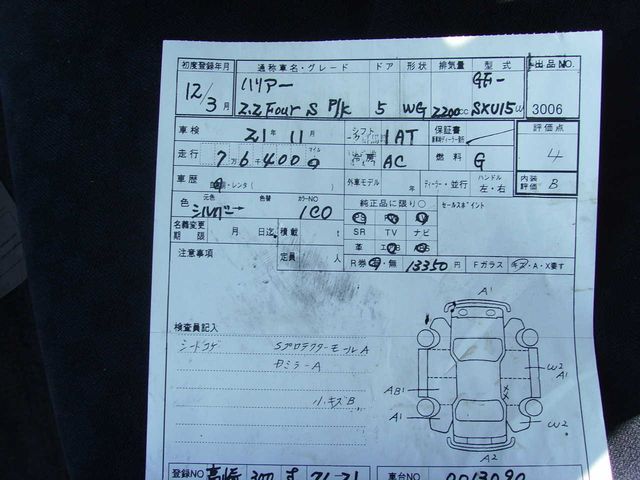 初度登録年月 通称車名・グレード ドア 形状 排気量 型式 出品NO.
ハリアー GF-
12/3月 2.2 Four S P/K 5 WG 2200cc SXU15W 3006
車検 21年 11月 シフト 1AT 保証書 評価点
走行 7万6千400 マイル 冷房 AC 燃料 G 4
車歴 ・レンタ( ) 外車モデル 年 ディーラー・並行 ハンドル 左・右 内装評価 B
色 元色 シルバー→ 色替 カラーNO 1C0 純正品に限り○ セールスポイント
名義変更期限 月 日迄 積載 t SR TV ナビ
定員 人 革
注意事項 R券 ・無 13350円 Fガラス キズ・A・X要す
A1
検査員記入
シートコゲ SプロテクターモールA
W2
A1
ミラーA
AB1
小キズB
A1
W2
A2
登録NO 高崎 300 す 71-71 車台NO 0013090